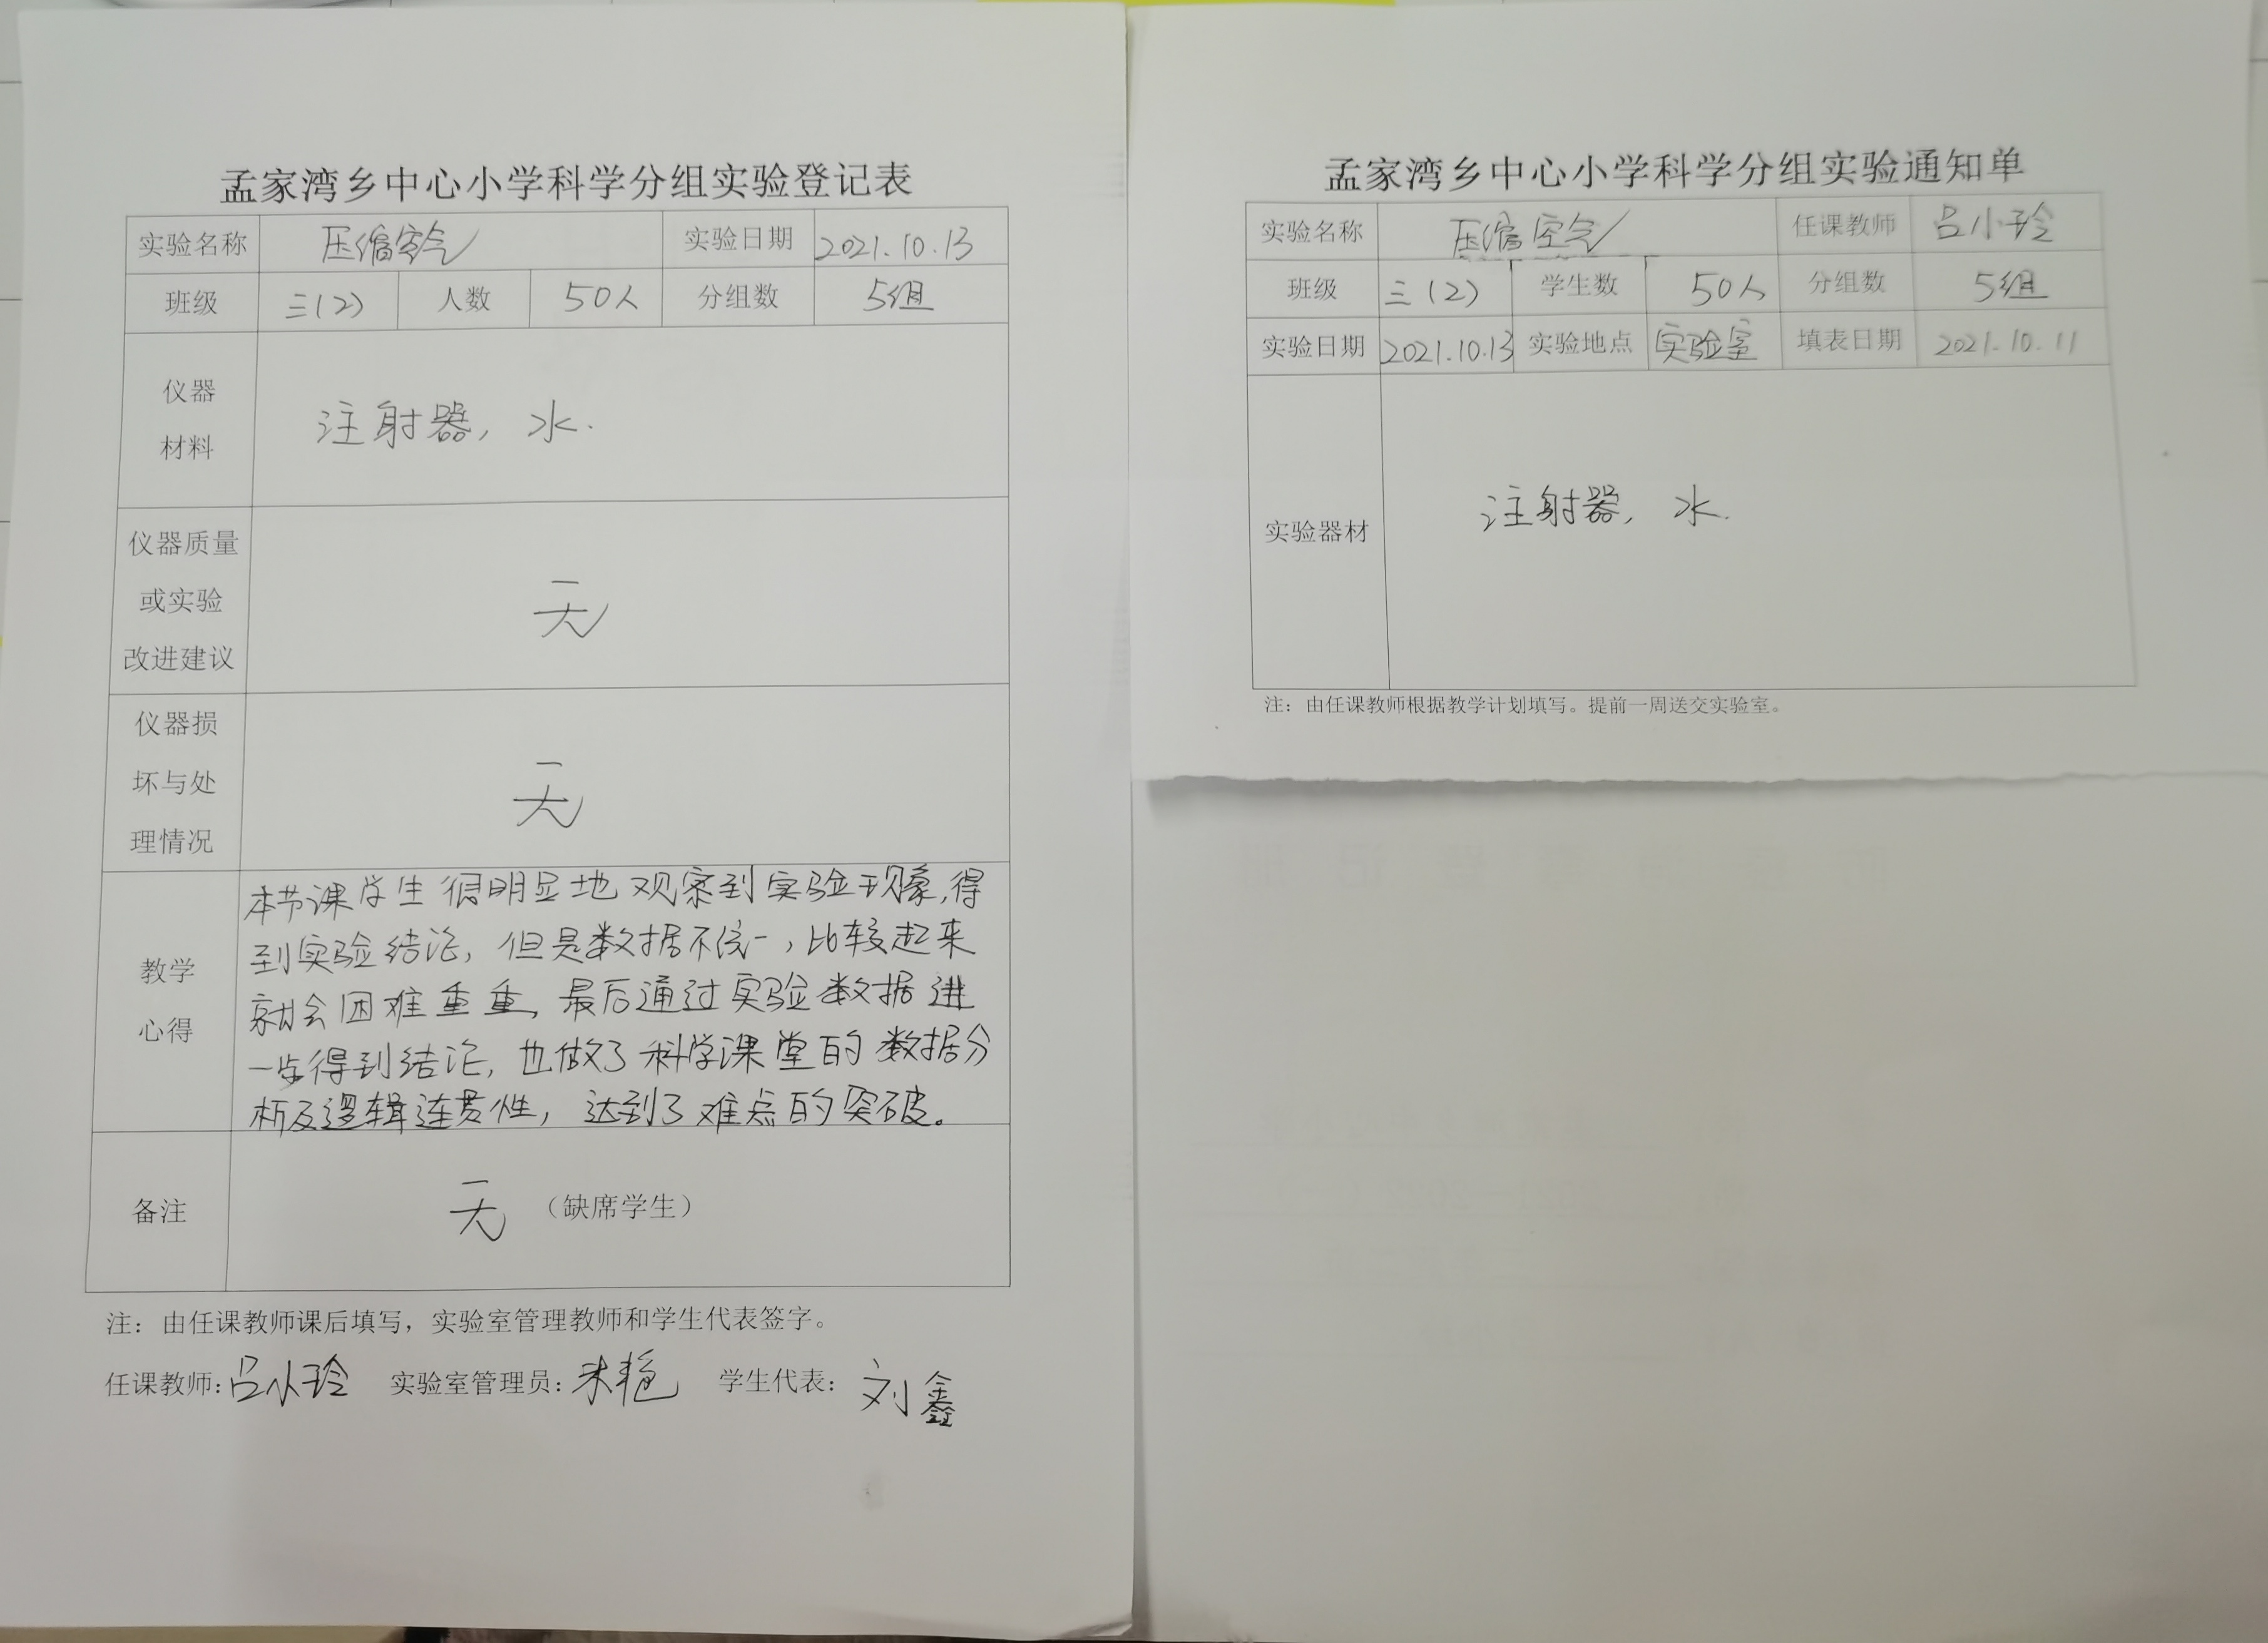 孟家湾乡中心小学科学分组实验登记表
实验名称 压缩空气 实验日期 2021.10.13
班级 三(2) 人数 50人 分组数 5组
仪器
材料
注射器, 水.
仪器质量
或实验
改进建议
无
仪器损
坏与处
理情况
无
教学
心得
本节课学生很明显地观察到实验现象,得
到实验结论, 但是数据不统一, 比较起来
就会困难重重, 最后通过实验数据进
一步得到结论, 也做了科学课堂的数据分
析及逻辑连贯性, 达到了难点的突破。
备注 无 (缺席学生)
注: 由任课教师课后填写, 实验室管理教师和学生代表签字。
任课教师: 吕小玲 实验室管理员: 朱艳 学生代表: 刘鑫
孟家湾乡中心小学科学分组实验通知单
实验名称 压缩空气 任课教师 吕小玲
班级 三(2) 学生数 50人 分组数 5组
实验日期 2021.10.13 实验地点 实验室 填表日期 2021.10.11
实验器材 注射器, 水.
注: 由任课教师根据教学计划填写。提前一周送交实验室。